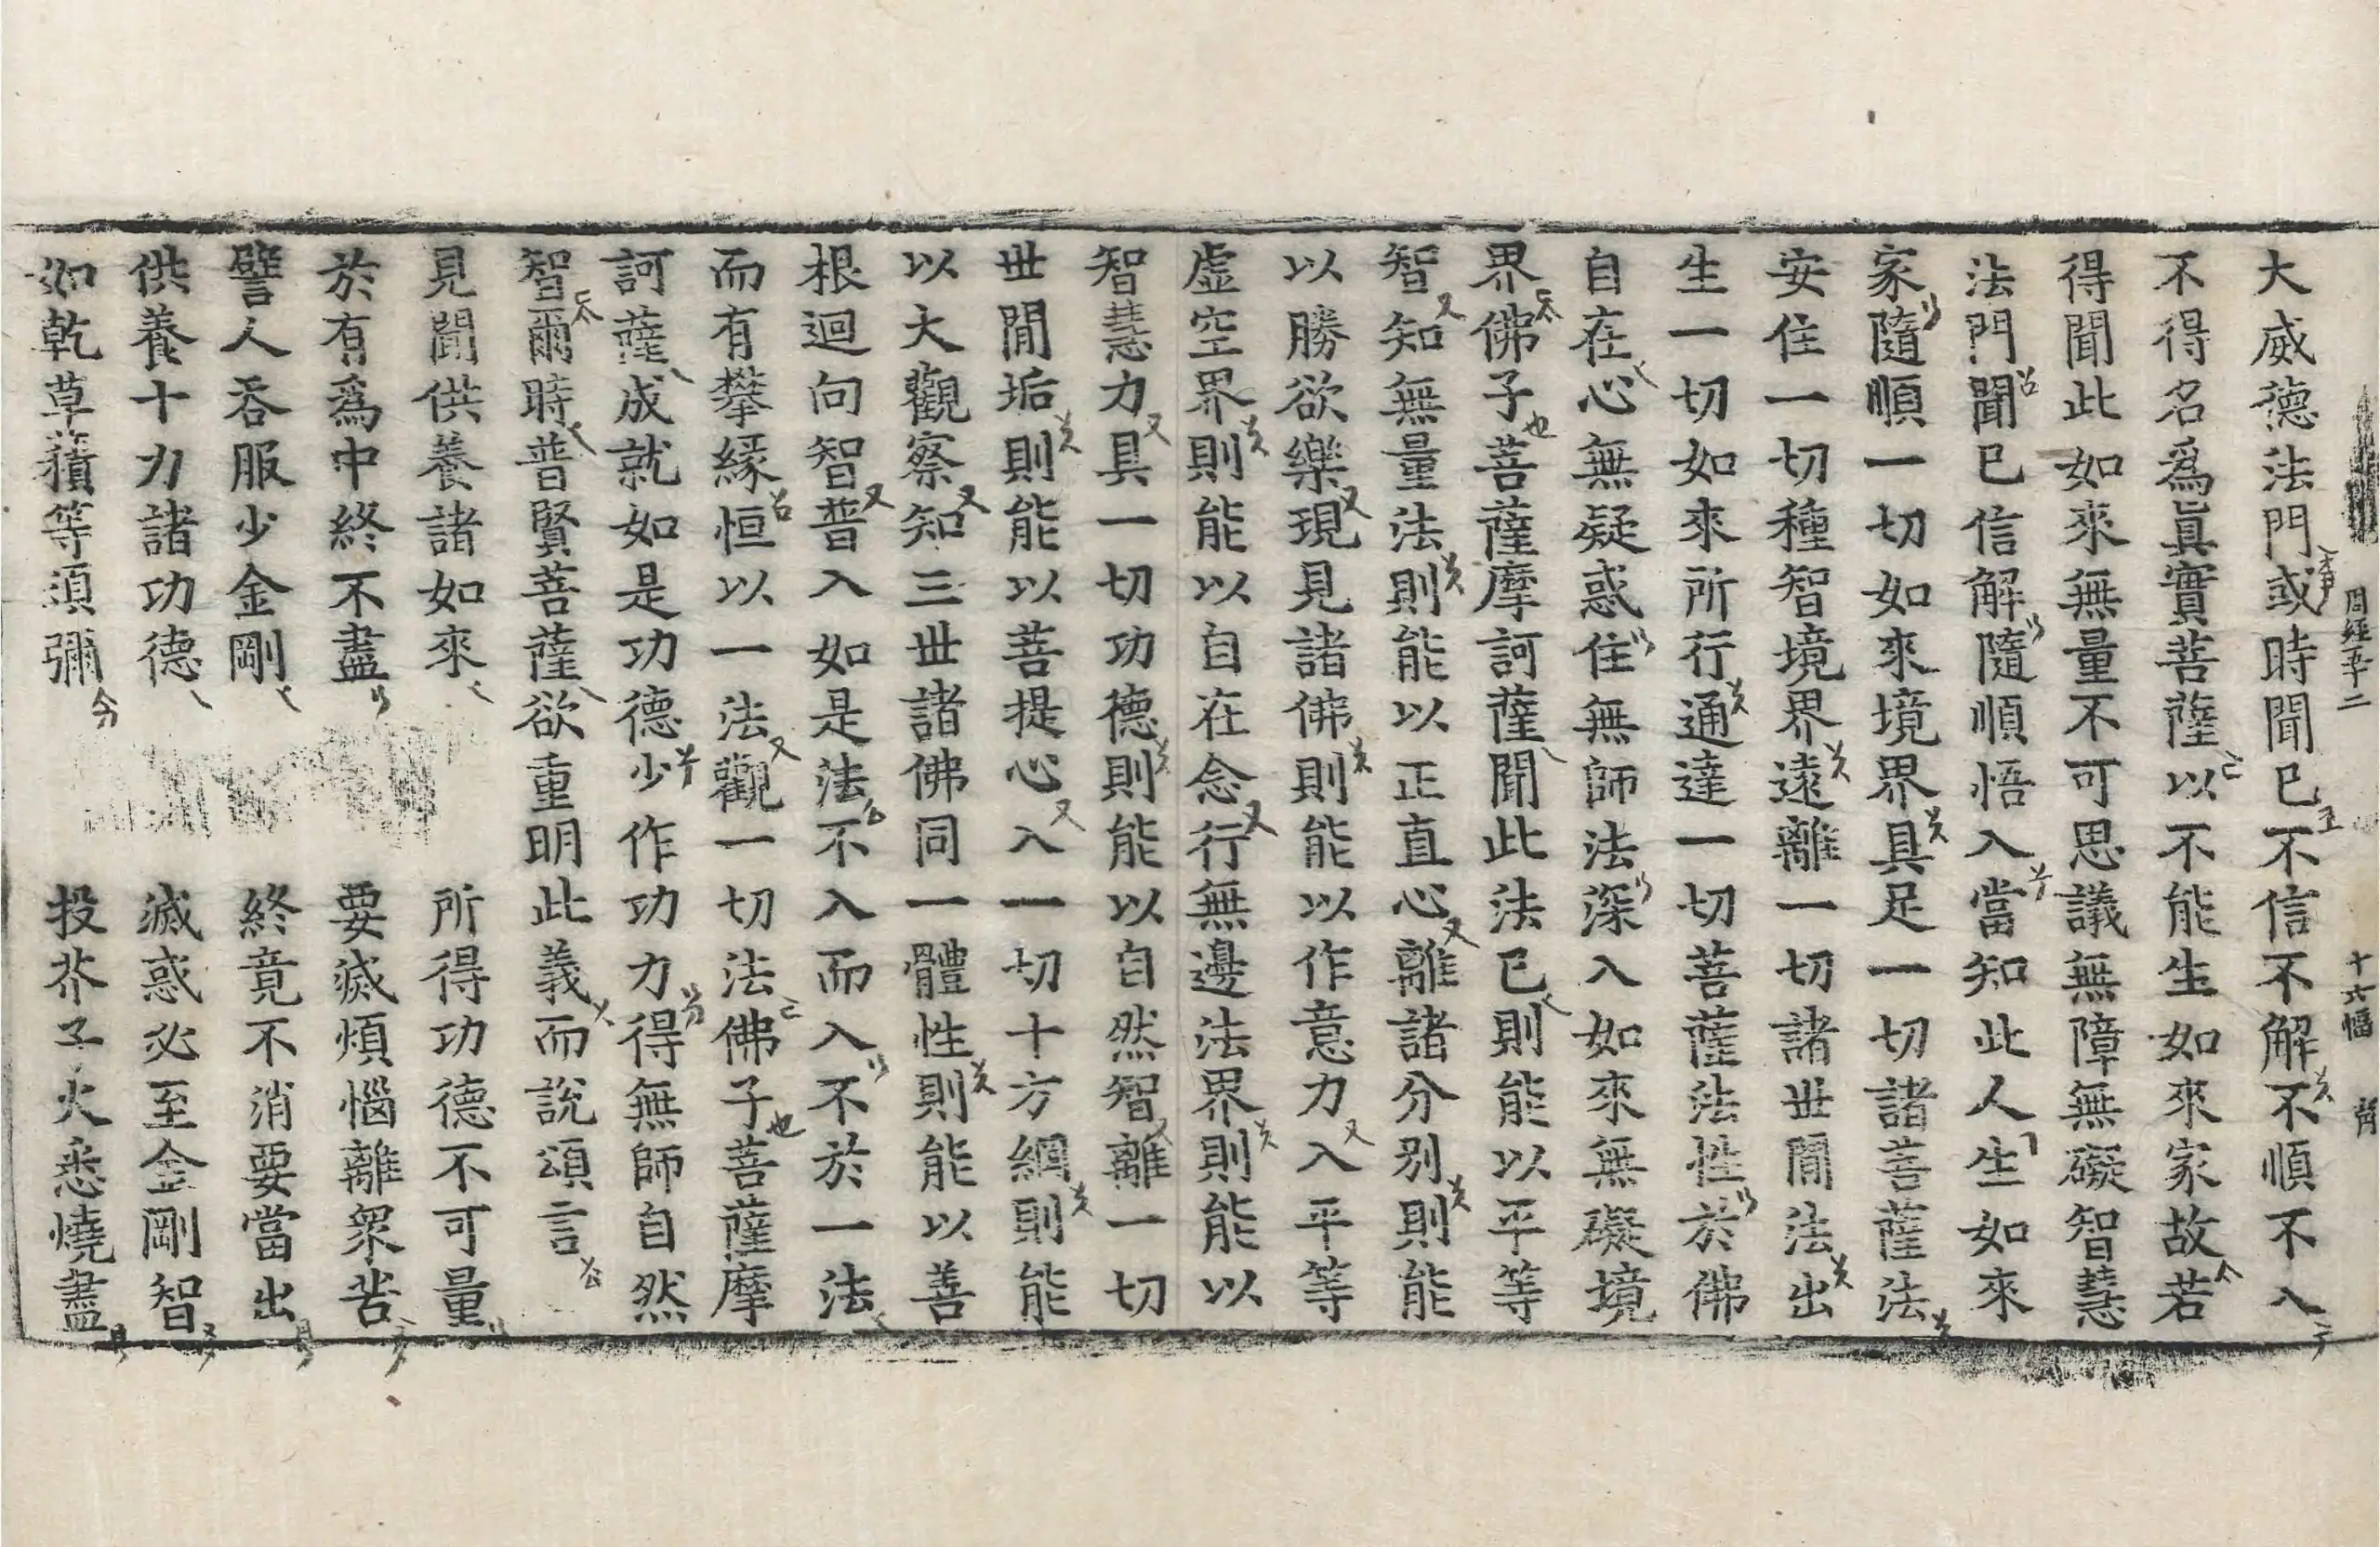 大威德法門或時聞已不信不解不順不入
不得名爲眞實菩薩以不能生如來家故若
得聞此如來無量不可思議無障無礙智慧
法門聞已信解隨順悟入當知此人生如來
家隨順一切如來境界具足一切諸菩薩法
安住一切種智境界遠離一切諸世間法出
生一切如來所行通達一切菩薩法性於佛
自在心無疑惑住無師法深入如來無礙境
界佛子菩薩摩訶薩聞此法已則能以平等
智知無量法則能以正直心離諸分別則能
以勝欲樂現見諸佛則能以作意力入平等
虛空界則能以自在念行無邊法界則能以
智慧力具一切功德則能以自然智離一切
世間垢則能以菩提心入一切十方網則能
以大觀察知三世諸佛同一體性則能以善
根迴向智普入如是法不入而入不於一法
而有攀緣恒以一法觀一切法佛子菩薩摩
訶薩成就如是功德少作功力得無師自然
智爾時普賢菩薩欲重明此義而說頌言
見聞供養諸如來 所得功德不可量
於有爲中終不盡 要滅煩惱離衆苦
譬人吞服少金剛 終竟不消要當出
供養十力諸功德 滅惑必至金剛智
如乾草積等須彌 投芥子火悉燒盡
周經五十二 十六幅